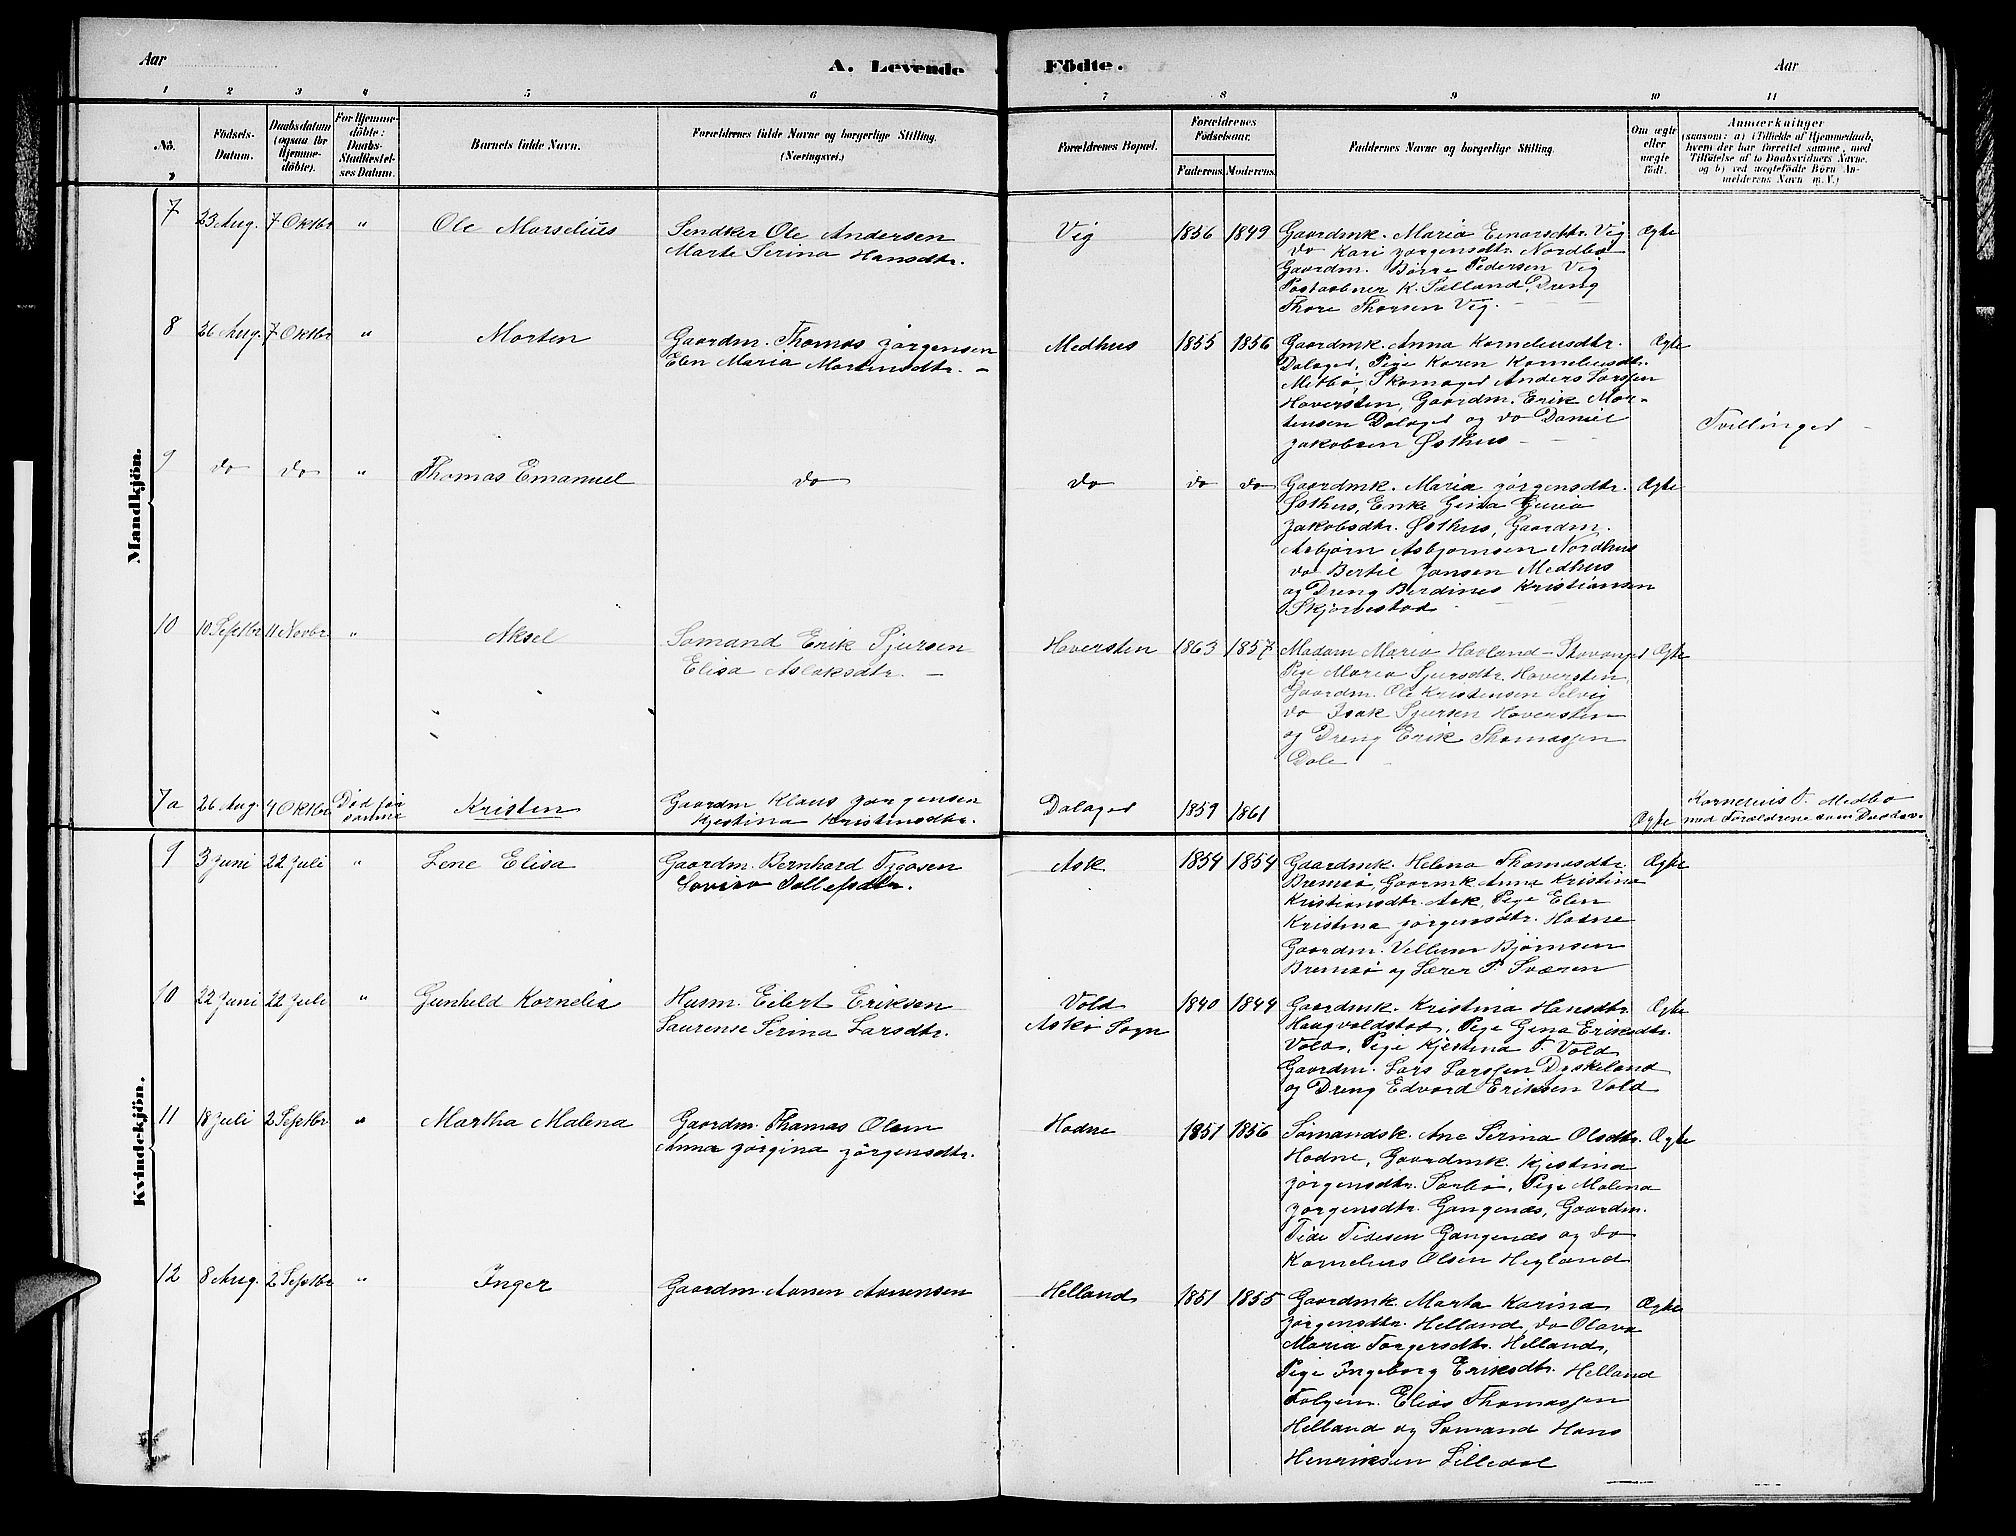 Aar
A. Levende Födte.
Aar
1 2 3 4 5 6 7 8 9 10 11
No.
Födsels-Datum.
Daabsdatum (ogsaa for Hjemme-döbte).
For Hjemme-döbte: Daabs-Stadfæstel-ses Datum.
Barnets fulde Navn.
Forældrenes fulde Navne og borgerlige Stilling. (Næringsvei.)
Forældrenes Bopæl.
Forældrenes Födselsaar.
Faderens. Moderens.
Faddernes Navne og borgerlige Stilling.
Om ægte eller uægte födt.
Anmærkninger
(saasom: a) i Tilfælde af Hjemmedaab, hvem der har forrettet samme, med Tilföielse af to Daabsvidners Navne, og b) ved uægtefödte Börn Anmelderens Navn m. V.)
Mandkjön.
7 23 Aug. 7 Oktbr " Ole Marselius
Sendker Ole Andersen
Marte Serina Hansdtr.
Vig 1856 1849
Gaardmk. Maria Einarsdtr. Vig
do Kari Jørgensdtr. Nordbø
Gaardm. Børre Pedersen Vig
Postaabner K. Sælland, Dreng
Thore Thorsen Vig.
Ægte
8 26 Aug. 7 Oktbr " Morten
Gaardm. Thomas Jørgensen
Elen Maria Mortensdtr.
Medhus 1855 1856
Gaardmk. Anna Korneliusdtr.
Dalaget, Pige Karen Korneliusdtr.
Metbø, Skomager Anders Larssen
Haversten, Gaardm. Erik Mor-
tensen Dalaget og do Daniel
Jakobsen Østhus
Ægte
Tvillinger
9 do do " Thomas Emanuel
do
do do do
Gaardmk. Maria Jørgensdtr.
Østhus, Enke Gina Guria
Jakobsdtr. Østhus, Gaardm.
Asbjørn Asbjørnsen Nordhus
do Bertil Jansen Medhus
og Dreng Berdines Kristiansen
Skjørvestad
Ægte
10 10 Septbr 11 Novbr " Aksel
Sømand Erik Sjursen
Elisa Aslaksdtr.
Haversten 1863 1857
Madam Maria Havland - Stavanger
Pige Maria Sjursdtr. Haversten,
Gaardm. Ole Kristensen Selvig
do Isak Sjursen Haversten
og Dreng Erik Thomassen
Dale
Ægte
7a 26 Aug. 4 Oktbr Død før samme Kristen
Gaardm Klaus Jørgensen
Kjestina Kristinsdtr.
Dalaget 1859 1861
Ægte
Kornelius T. Medbø
med Forældrene som
Kvindekjön.
9 3 Juni 22 Juli " Lene Elisa
Gaardm. Bernhard Tygesen
Lovisa Tollefsdtr.
Ask 1854 1854
Gaardmk. Helena Thomasdtr.
Bremsø, Gaardmk Anne Kristina
Kristiansdtr. Ask, Pige Elen
Kristina Jørgensdtr. Hodne
Gaardm. Villum Bjørnsen
Bremsø og Lærer P. Sværen
Ægte
10 22 Juni 22 Juli " Gunhild Kornelia
Husm. Eilert Eriksen
Laurense Serina Larsdtr.
Vold
Askø Sogn
1840 1844
Gaardmk. Kristina Hansdtr.
Haugvaldstad, Pige Gina Eriksdtr.
Vold, Pige Kjestina T. Vold
Gaardm. Lars Larssen Dyskeland
og Dreng Edvard Eriksen Vold
Ægte
11 18 Juli 2 Septbr " Martha Malena
Gaardm. Thomas Olsen
Anna Jørgina Jørgensdtr.
Hodne 1851 1856
Sømandsk. Ane Serina Olsdtr.
Hodne, Gaardmk. Kjestina
Jørgensdtr. Sørbø, Pige Malena
Jørgensdtr. Gangenæs, Gaardm.
Tide Tidesen Gangenæs og do
Kornelius Olsen Hegland
Ægte
12 8 Aug. 2 Septbr " Inger
Gaardm. Aanen Aanensen
Helland 1851 1855
Gaardmk. Marta Karina
Jørgensdtr. Helland, do Olava
Maria Torgersdtr. Helland,
Pige Ingeborg Eriksdtr. Helland
Elias Thomassen
Helland og Sømand Hans
Henriksen Lilledal
Ægte